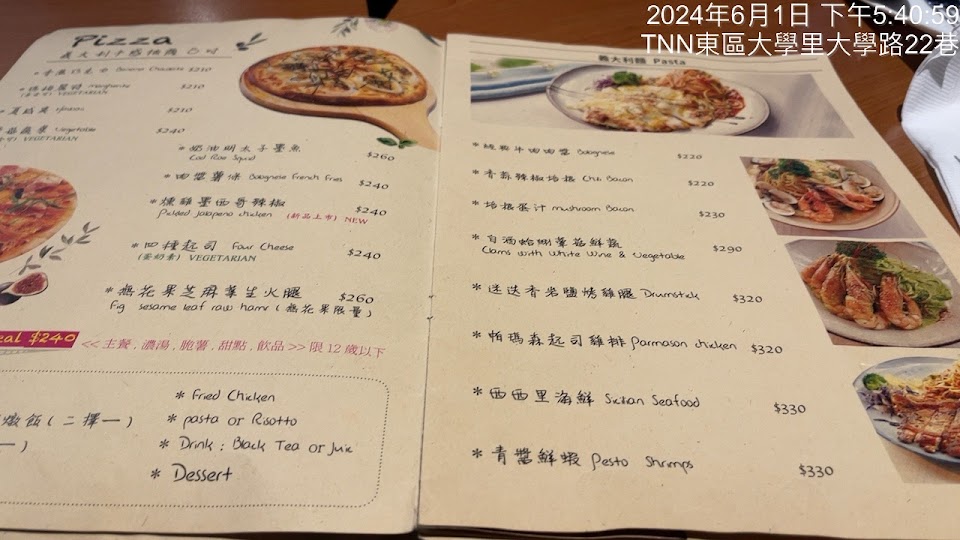 2024年6月1日 下午5:40:59
TNN東區大學里大學路22巷
Pizza
Banana Chocolate $210
Margherita $210
VEGETARIAN
$210
蔬菜 Vegetable $240
VEGETARIAN
* 奶油明太子墨魚 $260
Cod Roe Squid
* 肉醬薯條 Bolognese French Fries $240
* 燻雞墨西哥辣椒 $240
Pickled jalapeno chicken (新品上市) NEW
* 四種起司 Four Cheese $240
(蛋奶素) VEGETARIAN
* 無花果芝麻葉生火腿 $260
Fig sesame leaf raw ham (無花果限量)
eal $240 << 主餐.濃湯.脆薯.甜點.飲品 >> 限12歲以下
* Fried Chicken
燉飯(二擇一) * pasta or Risotto
一) * Drink : Black Tea or Juic
* Dessert
義大利麵 Pasta
* 經典牛肉肉醬 Bolognese $220
* 香蒜辣椒培根 Chili Bacon $220
* 培根蛋汁 mushroom Bacon $230
* 白酒蛤蜊蕈菇鮮蔬 $290
Clams with White Wine & Vegetable
* 迷迭香岩鹽烤雞腿 Drumstick $320
* 帕瑪森起司雞排 Parmason chicken $320
* 西西里海鮮 Sicilian Seafood $330
* 青醬鮮蝦 Pesto Shrimps $330